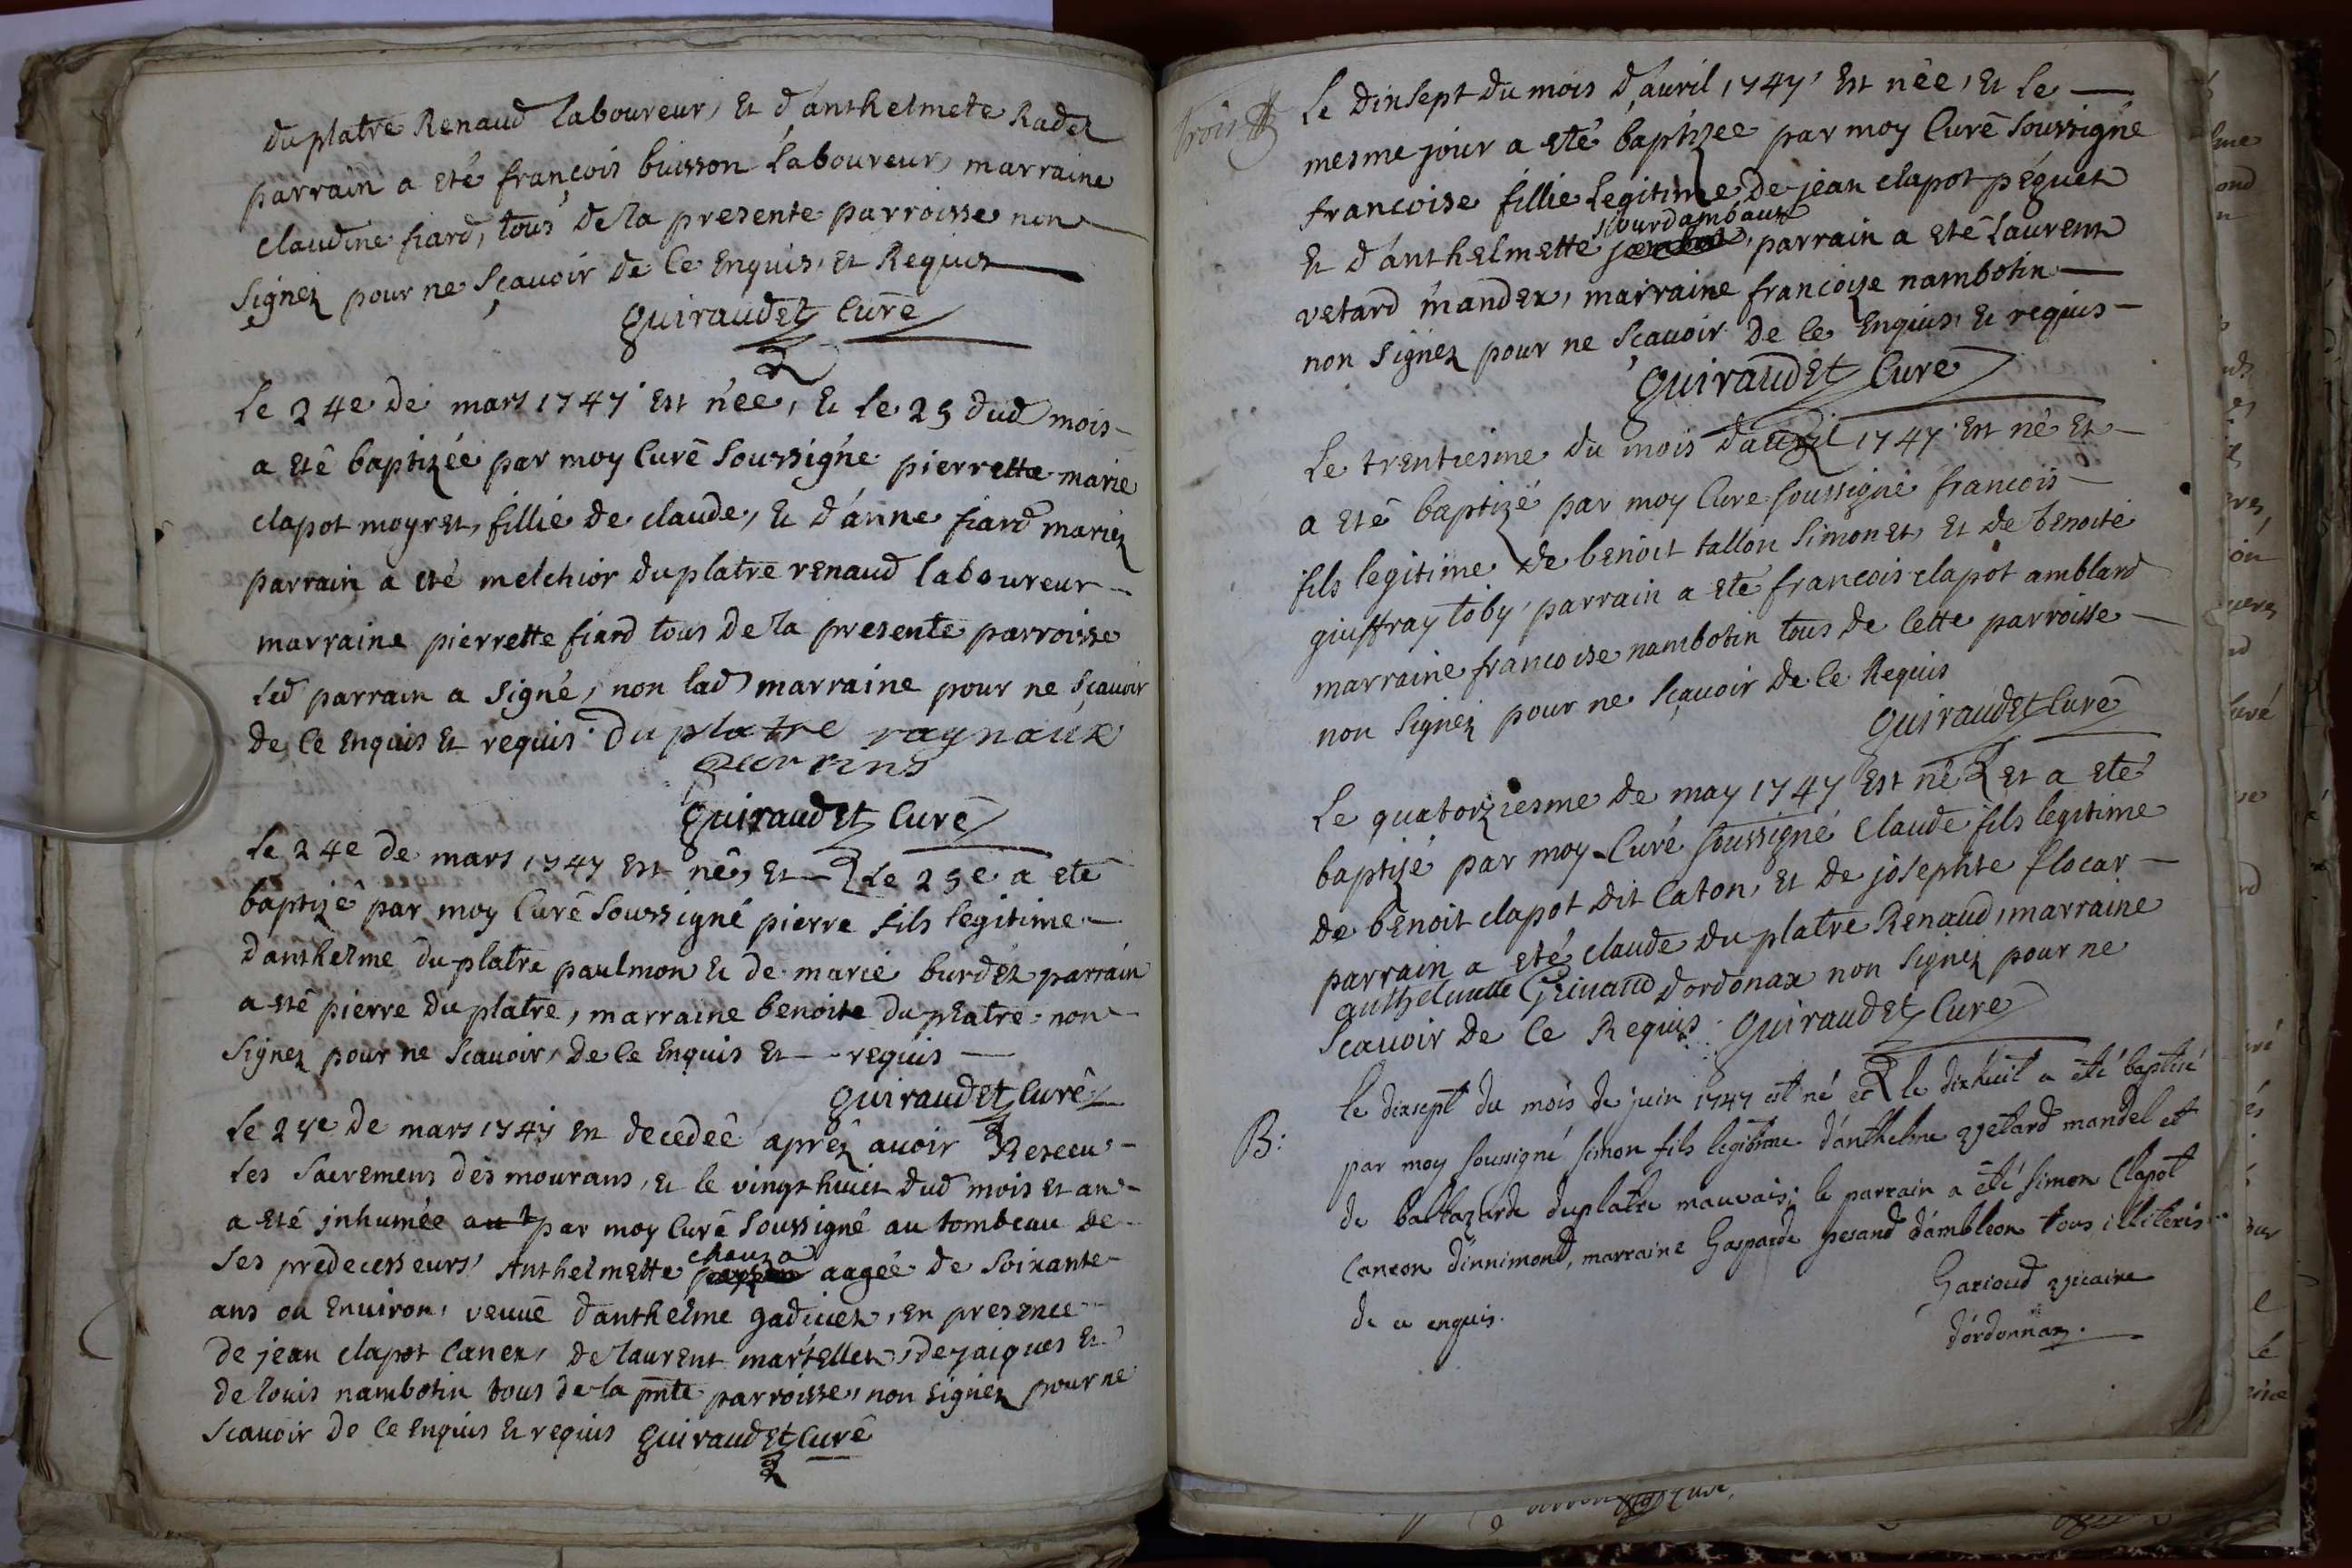 duplatre Renaud laboureur, Et d'anthelmete Radet
parrain a eté françois buisson laboureur, marraine
claudine fiard, tous de la presente parroisse non
signez pour ne sçavoir de ce Enquis, et Requis
Quiraudet Curé
Le 24e de mars 1747 Est née, Et Le 25 dud mois
a eté baptizée par moy Curé soussigné pierrette marie
clapot moyret, fillie de claude, Et d'anne fiard mariez
parrain a eté melchior duplatre renaud laboureur
marraine pierrette fiard tous de la presente parroisse
led parrain a signé, non lad marraine pour ne sçavoir
de ce enquis Et requis. Du platre raynaux
parrins
Quiraudet Curé
Le 24e de mars 1747 est né, Et Le 25e a eté
baptizé par moy Curé soussigné pierre fils legitime
d'anthelme duplatre paulmon Et de marie burdet parrain
a eté pierre duplatre, marraine benoite duplatre non
signez pour ne scavoir, de ce Enquis Et requis
Quiraudet Curé
Le 27e de mars 1747 Est decedeé aprez avoir Reseeu
les sacremens des mourans, Et le vingt huict dud mois et an
a eté inhumée par moy Curé soussigné au tombeau de
ses predecesseurs Anthelmette chouza aagée de soixante
ans ou Environ, veuve d'anthelme gadiuet, en presence
de jean clapot Canet, de laurent martellet, de jaiques Et
de louis nambotin tous de la pnte parroisse, non signez pour ne
scavoir de ce enquis Et requis Quiraudet Curé
trois
Le dixsept du mois d'auril, 1747 Est née, Et Le
mesme jour a eté baptizee par moy Curé soussigné
francoise fillie legitime de jean clapot péguet
jourdambaux
Et d'anthelmette parrain a eté Laurent
vetard mandex, marraine francoise nambotin
non signez pour ne sçavoir de ce Enquis, Et requis
Quiraudet Curé
Le trentiesme du mois d'auril 1747 Est né Et
a eté baptizé par moy Cure soussigné francois
fils legitime de benoit tallon simonet, et de benoite
giuffray toby, parrain a eté francois clapot amblard
marraine francoise nambotin tous de cette parroisse
non signez pour ne sçavoir de ce Requis
Quiraudet Curé
Le quatorziesme de may 1747 Est né Et a eté
baptizé par moy Curé soussigné Claude fils legitime
de benoit clapot dit Caton, Et de josephte flocar
parrain a eté claude duplatre Renaud, marraine
anthelmette Grinand d'ordonax non signez pour ne
scavoir de ce Requis. Quiraudet Cure
B:
le dixsept du mois de juin 1747 est né et le dixhuit a été baptisé
par moy soussigné simon fils legitime d'anthelme vetard mandel et
de baltazarde duplatre mauvais; le parrain a été simon Clapot
Canton d'innimond, marraine Gasparde pesand d'ambleon tous illiterés
de ce enquis.
Garioud vicaire
d'ordonnaz.